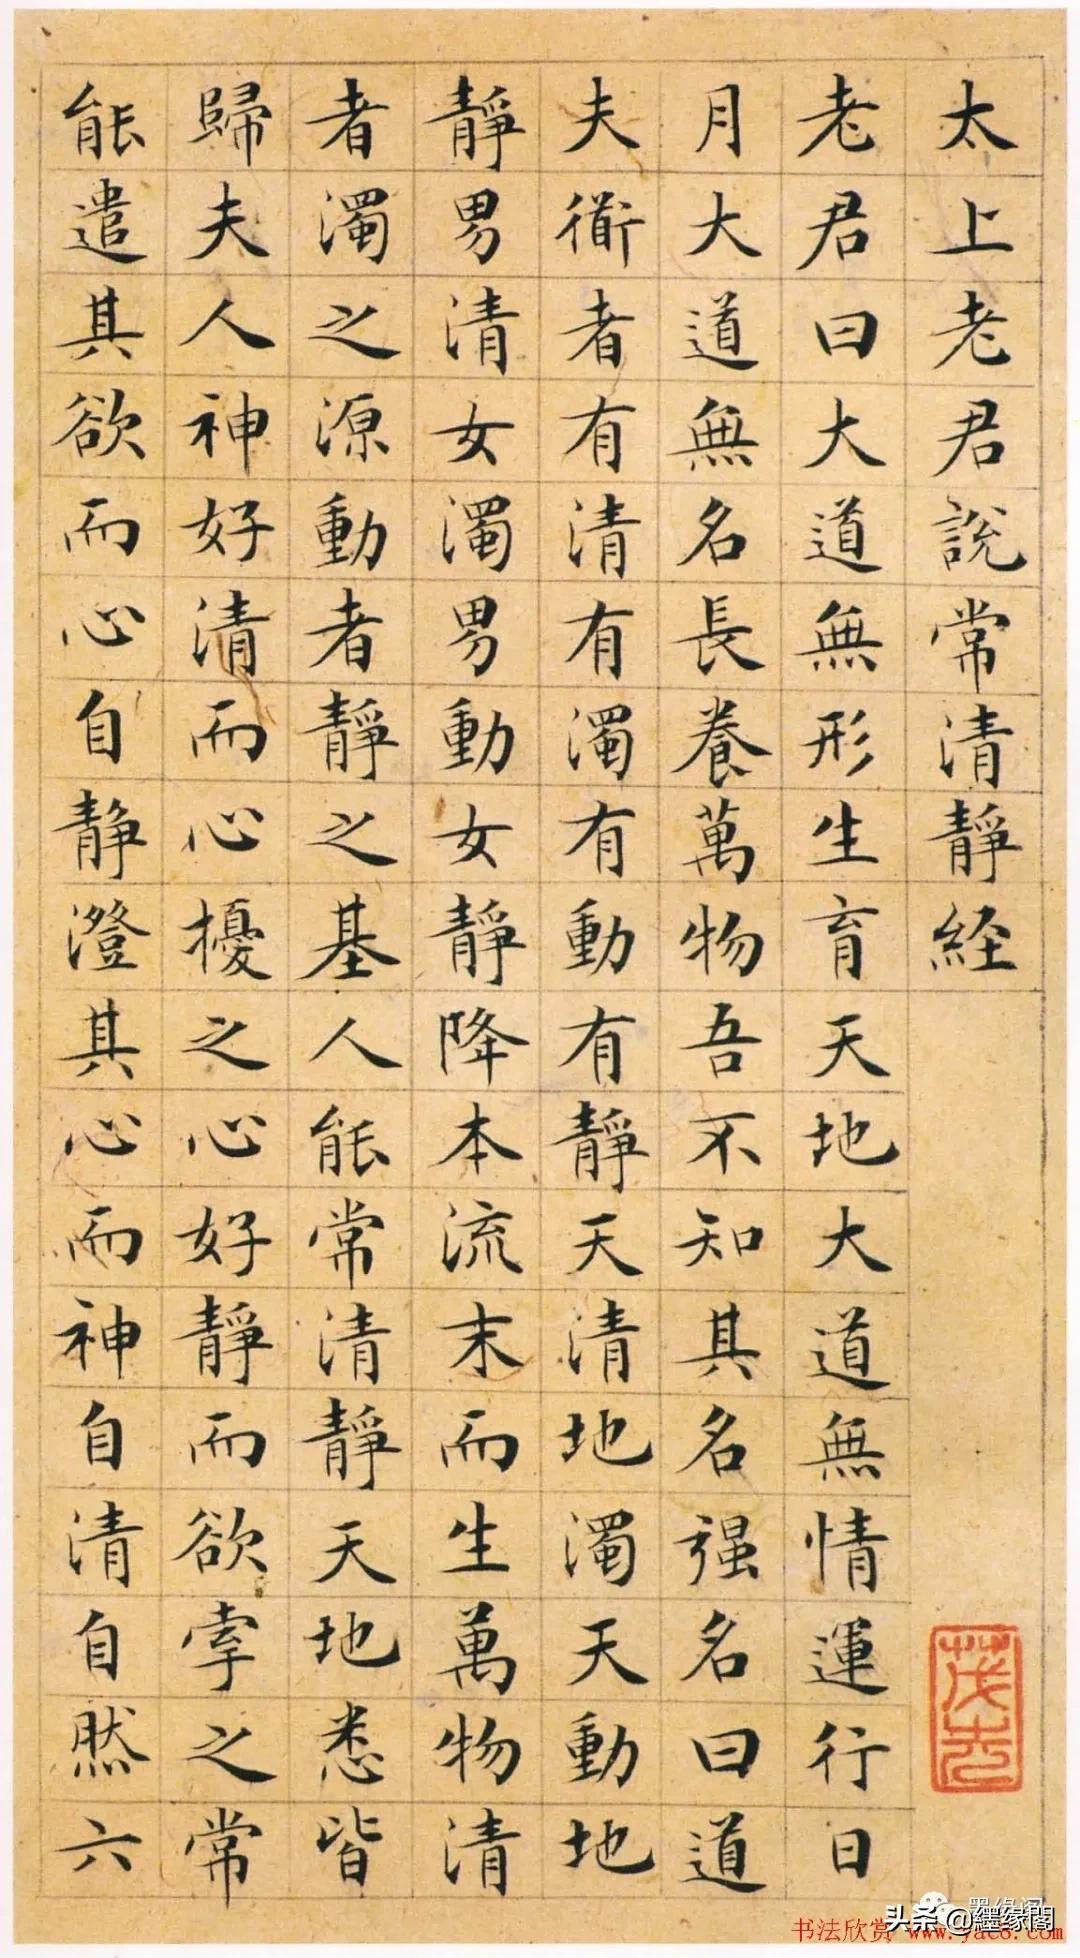 太上老君說常清靜経
老君曰大道無形生育天地大道無情運行日
月大道無名長養萬物吾不知其名强名曰道
夫衜者有清有濁有動有靜天清地濁天動地
靜男清女濁男動女靜降本流末而生萬物清
者濁之源動者靜之基人能常清靜天地悉皆
歸夫人神好清而心擾之心好靜而欲牽之常
能遣其欲而心自靜澄其心而神自清自然六
墨缘阁
头条 @纆缘閣
书法欣赏 www.yac8.com